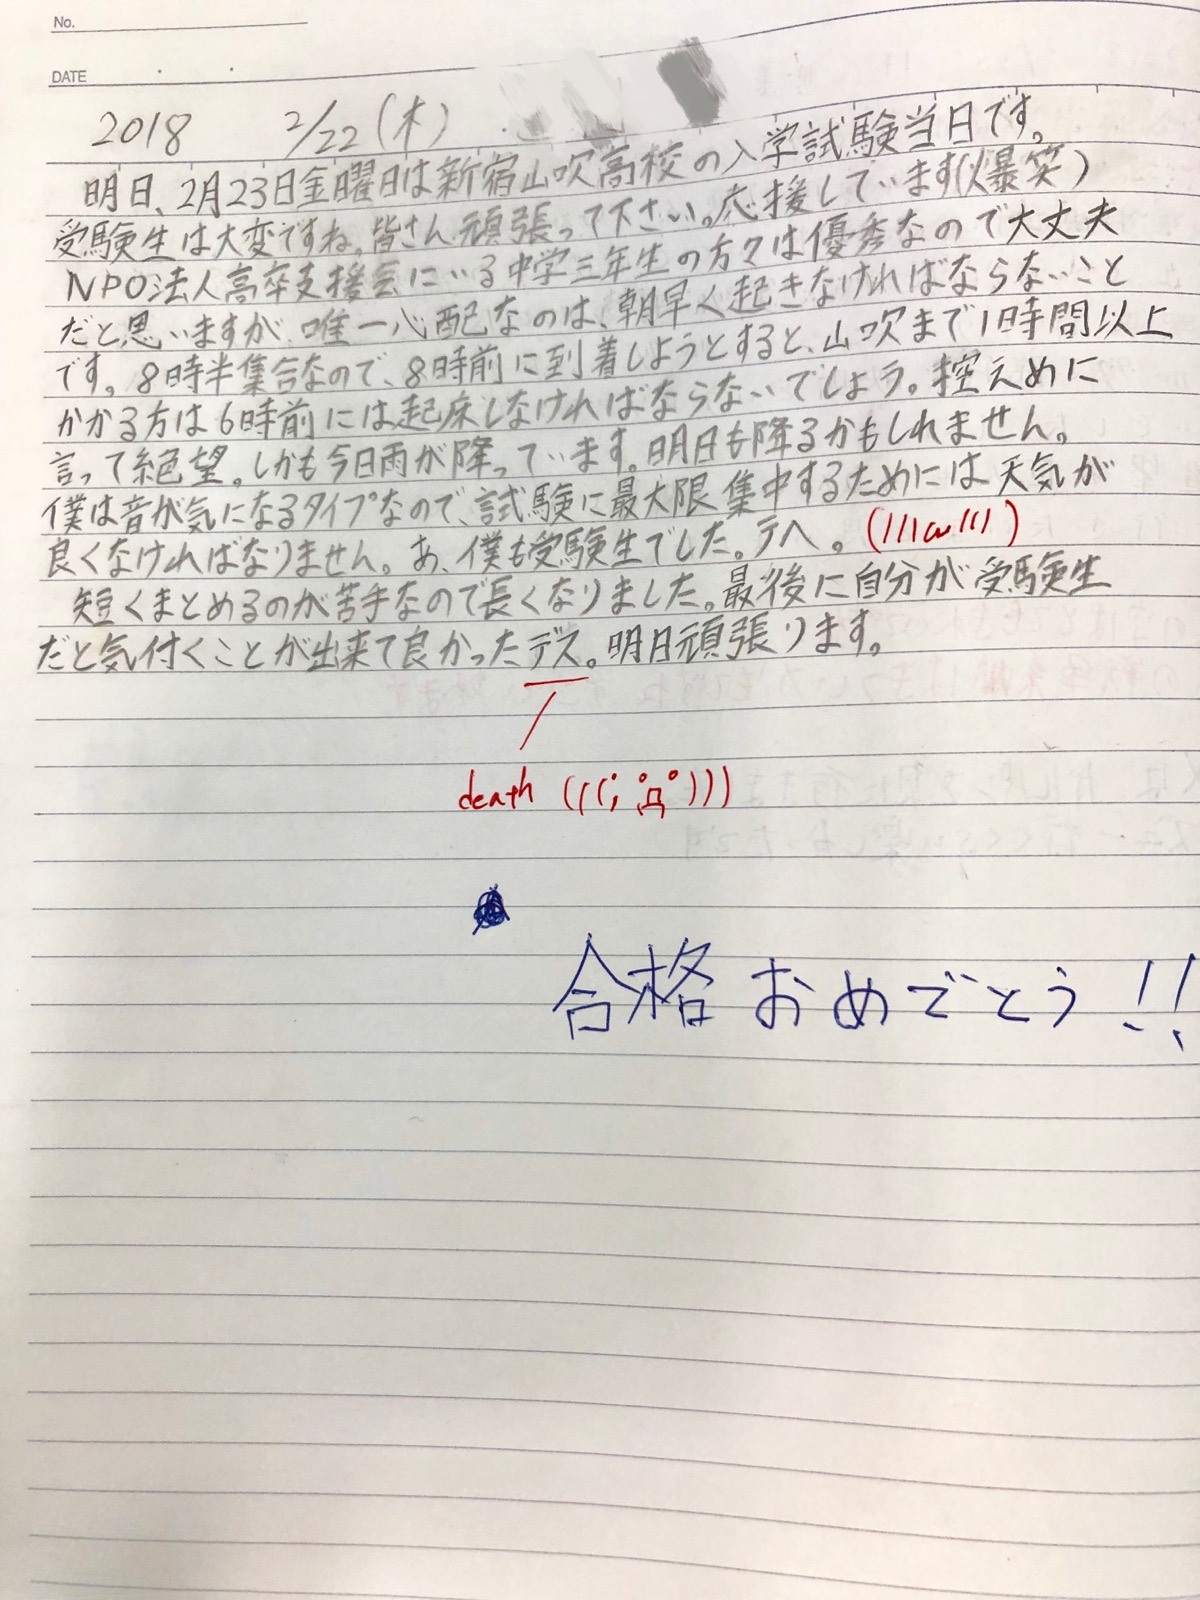 No.
DATE
2018 2/22(木)
明日、2月23日金曜日は新宿山吹高校の入学試験当日です。
受験生は大変ですね。皆さん頑張って下さい。応援しています(爆笑)
NPO法人高卒支援会にいる中学三年生の方々は優秀なので大丈夫
だと思いますが、唯一心配なのは、朝早く起きなければならないこと
です。8時半集合なので、8時前に到着しようとすると、山吹まで1時間以上
かかる方は6時前には起床しなければならないでしょう。控えめに
言って絶望。しかも今日雨が降っています。明日も降るかもしれません。
僕は音が気になるタイプなので、試験に最大限集中するためには天気が
良くなければなりません。あ、僕も受験生でした。テヘ。(///ω///)
短くまとめるのが苦手なので長くなりました。最後に自分が受験生
だと気付くことが出来て良かったデス。明日頑張ります。
death (((; ゚Д゚)))
合格おめでとう!!